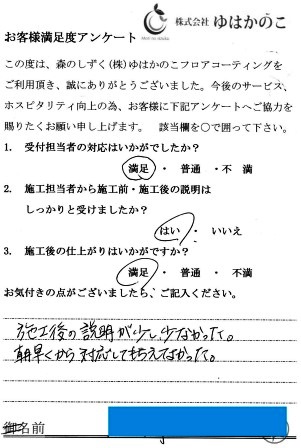 株式会社 ゆはかのこ
お客様満足度アンケート
この度は、森のしずく(株)ゆはかのこフロアコーティングを
ご利用頂き、誠にありがとうございました。今後のサービス、
ホスピタリティ向上の為、お客様に下記アンケートへご協力を
賜りたくお願い申し上げます。 該当欄を〇で囲って下さい。
1. 受付担当者の対応はいかがでしたか?
満足 ・ 普通 ・ 不 満
2. 施工担当者から施工前・施工後の説明は
しっかりと受けましたか?
はい ・ いいえ
3. 施工後の仕上がりはいかがですか?
満足 ・ 普通 ・ 不満
お気付きの点がございましたら、ご記入ください。
施工後の説明が少し少なかった。
朝早くから対応してもらえてよかった。
御名前